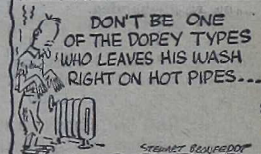 DON'T BE ONE
OF THE DOPEY TYPES
WHO LEAVES HIS WASH
RIGHT ON HOT PIPES...
STEWART